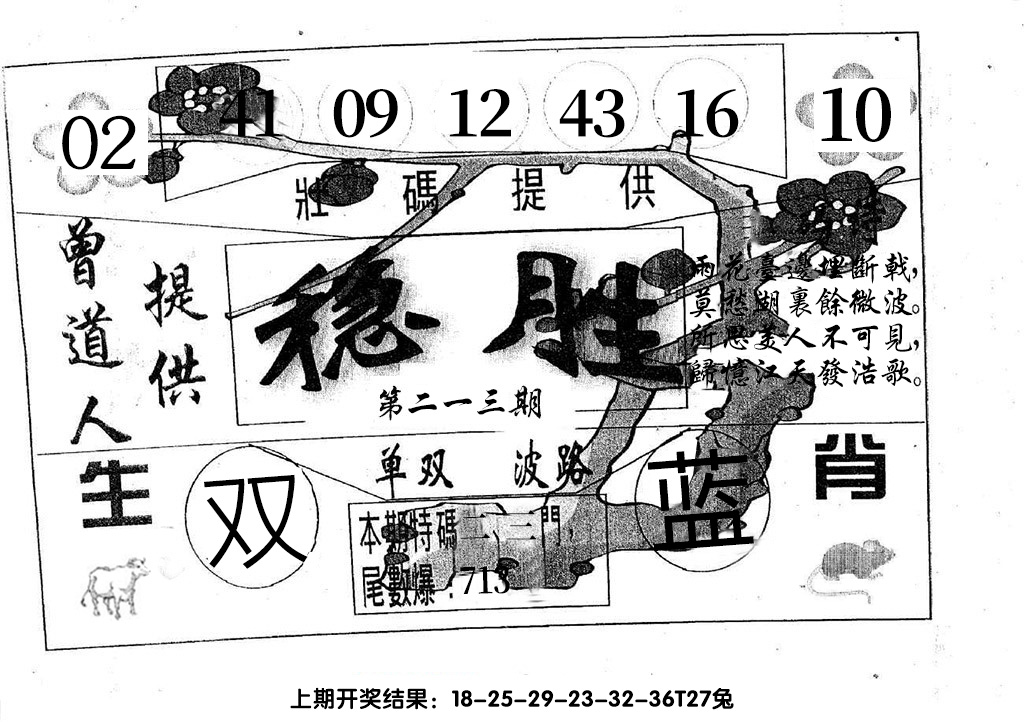 02 41 09 12 43 16 10
壯碼提供
特
曾道人
提供
稳胜
第二一三期
雨花臺邊埋斷戟,
莫愁湖裏餘微波。
所思美人不可見,
歸憶江天發浩歌。
单双 波路
生肖
双
蓝
本期特碼二、三門,
尾數爆:713
上期开奖结果：18-25-29-23-32-36T27兔